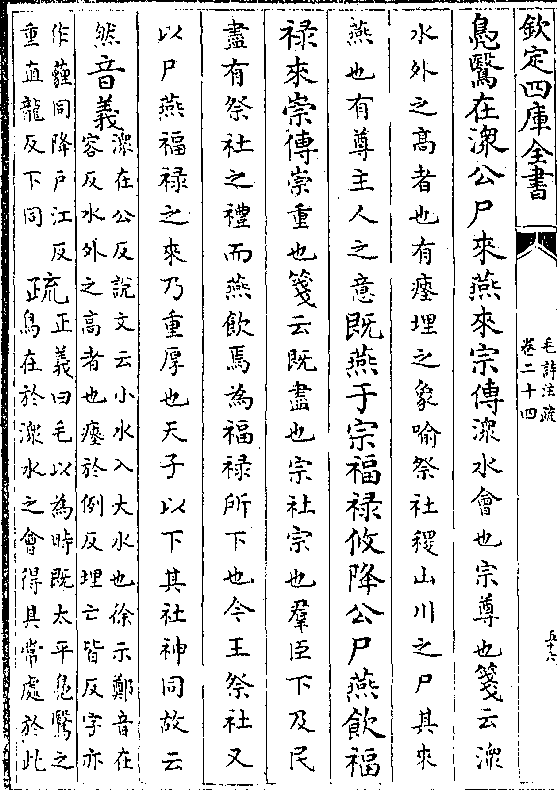 欽定四庫全書
毛詩注疏
卷二十四
五十六
鳧鷖在潀公尸來燕來宗傳潀水會也宗尊也箋云潀
水外之高者也有瘞埋之象喻祭社稷山川之尸其來
燕也有尊主人之意既燕于宗福祿攸降公尸燕飲福
祿來崇傳崇重也箋云既盡也宗社宗也羣臣下及民
盡有祭社之禮而燕飲焉為福祿所下也今王祭社又
以尸燕福祿之來乃重厚也天子以下其社神同故云
然音義
潀在公反說文云小水入大水也徐示鄭音在
容反水外之高者也瘞於例反埋亡皆反字亦
作薶同降戶江反
重直龍反下同
疏
正義曰毛以為時既太平鳧鷖之
鳥在於潀水之會得其常處於此